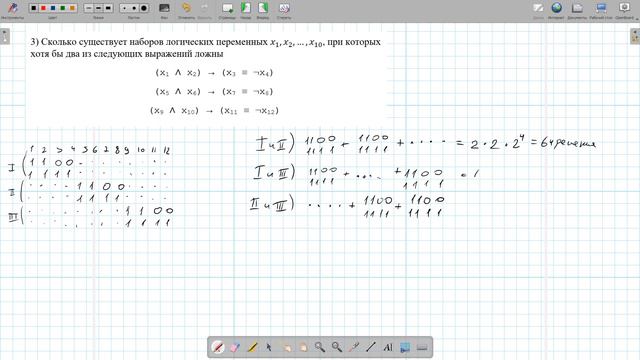 Инструменты
Доски
Цвет
Толщина
Ластик
Фоны
Отменить
Вернуть
Страницы
Назад
Вперед
Очистить
Рабочий стол
OpenBoard
3) Сколько существует наборов логических переменных x₁, x₂, ..., x₁₀, при которых
хотя бы два из следующих выражений ложны
(x₁ ∧ x₂) → (x₃ ≡ ¬x₄)
(x₅ ∧ x₆) → (x₇ ≡ ¬x₈)
(x₉ ∧ x₁₀) → (x₁₁ ≡ ¬x₁₂)
1 2 3 4 5 6 7 8 9 10 11 12
I ( 1 1 0 0 . . . . . . . .
1 1 1 1 . . . . . . . .
II ( . . . . 1 1 0 0 . . . .
. . . . 1 1 1 1 . . . .
III ( . . . . . . . . 1 1 0 0
. . . . . . . . 1 1 1 1
I и II) 1100 + 1100 + .... = 2 · 2 · 2⁴ = 64 решения
1111 1111
I и III) 1100 + .... + 1100
1111 1111
II и III) .... + 1100 + 1100
1111 1111